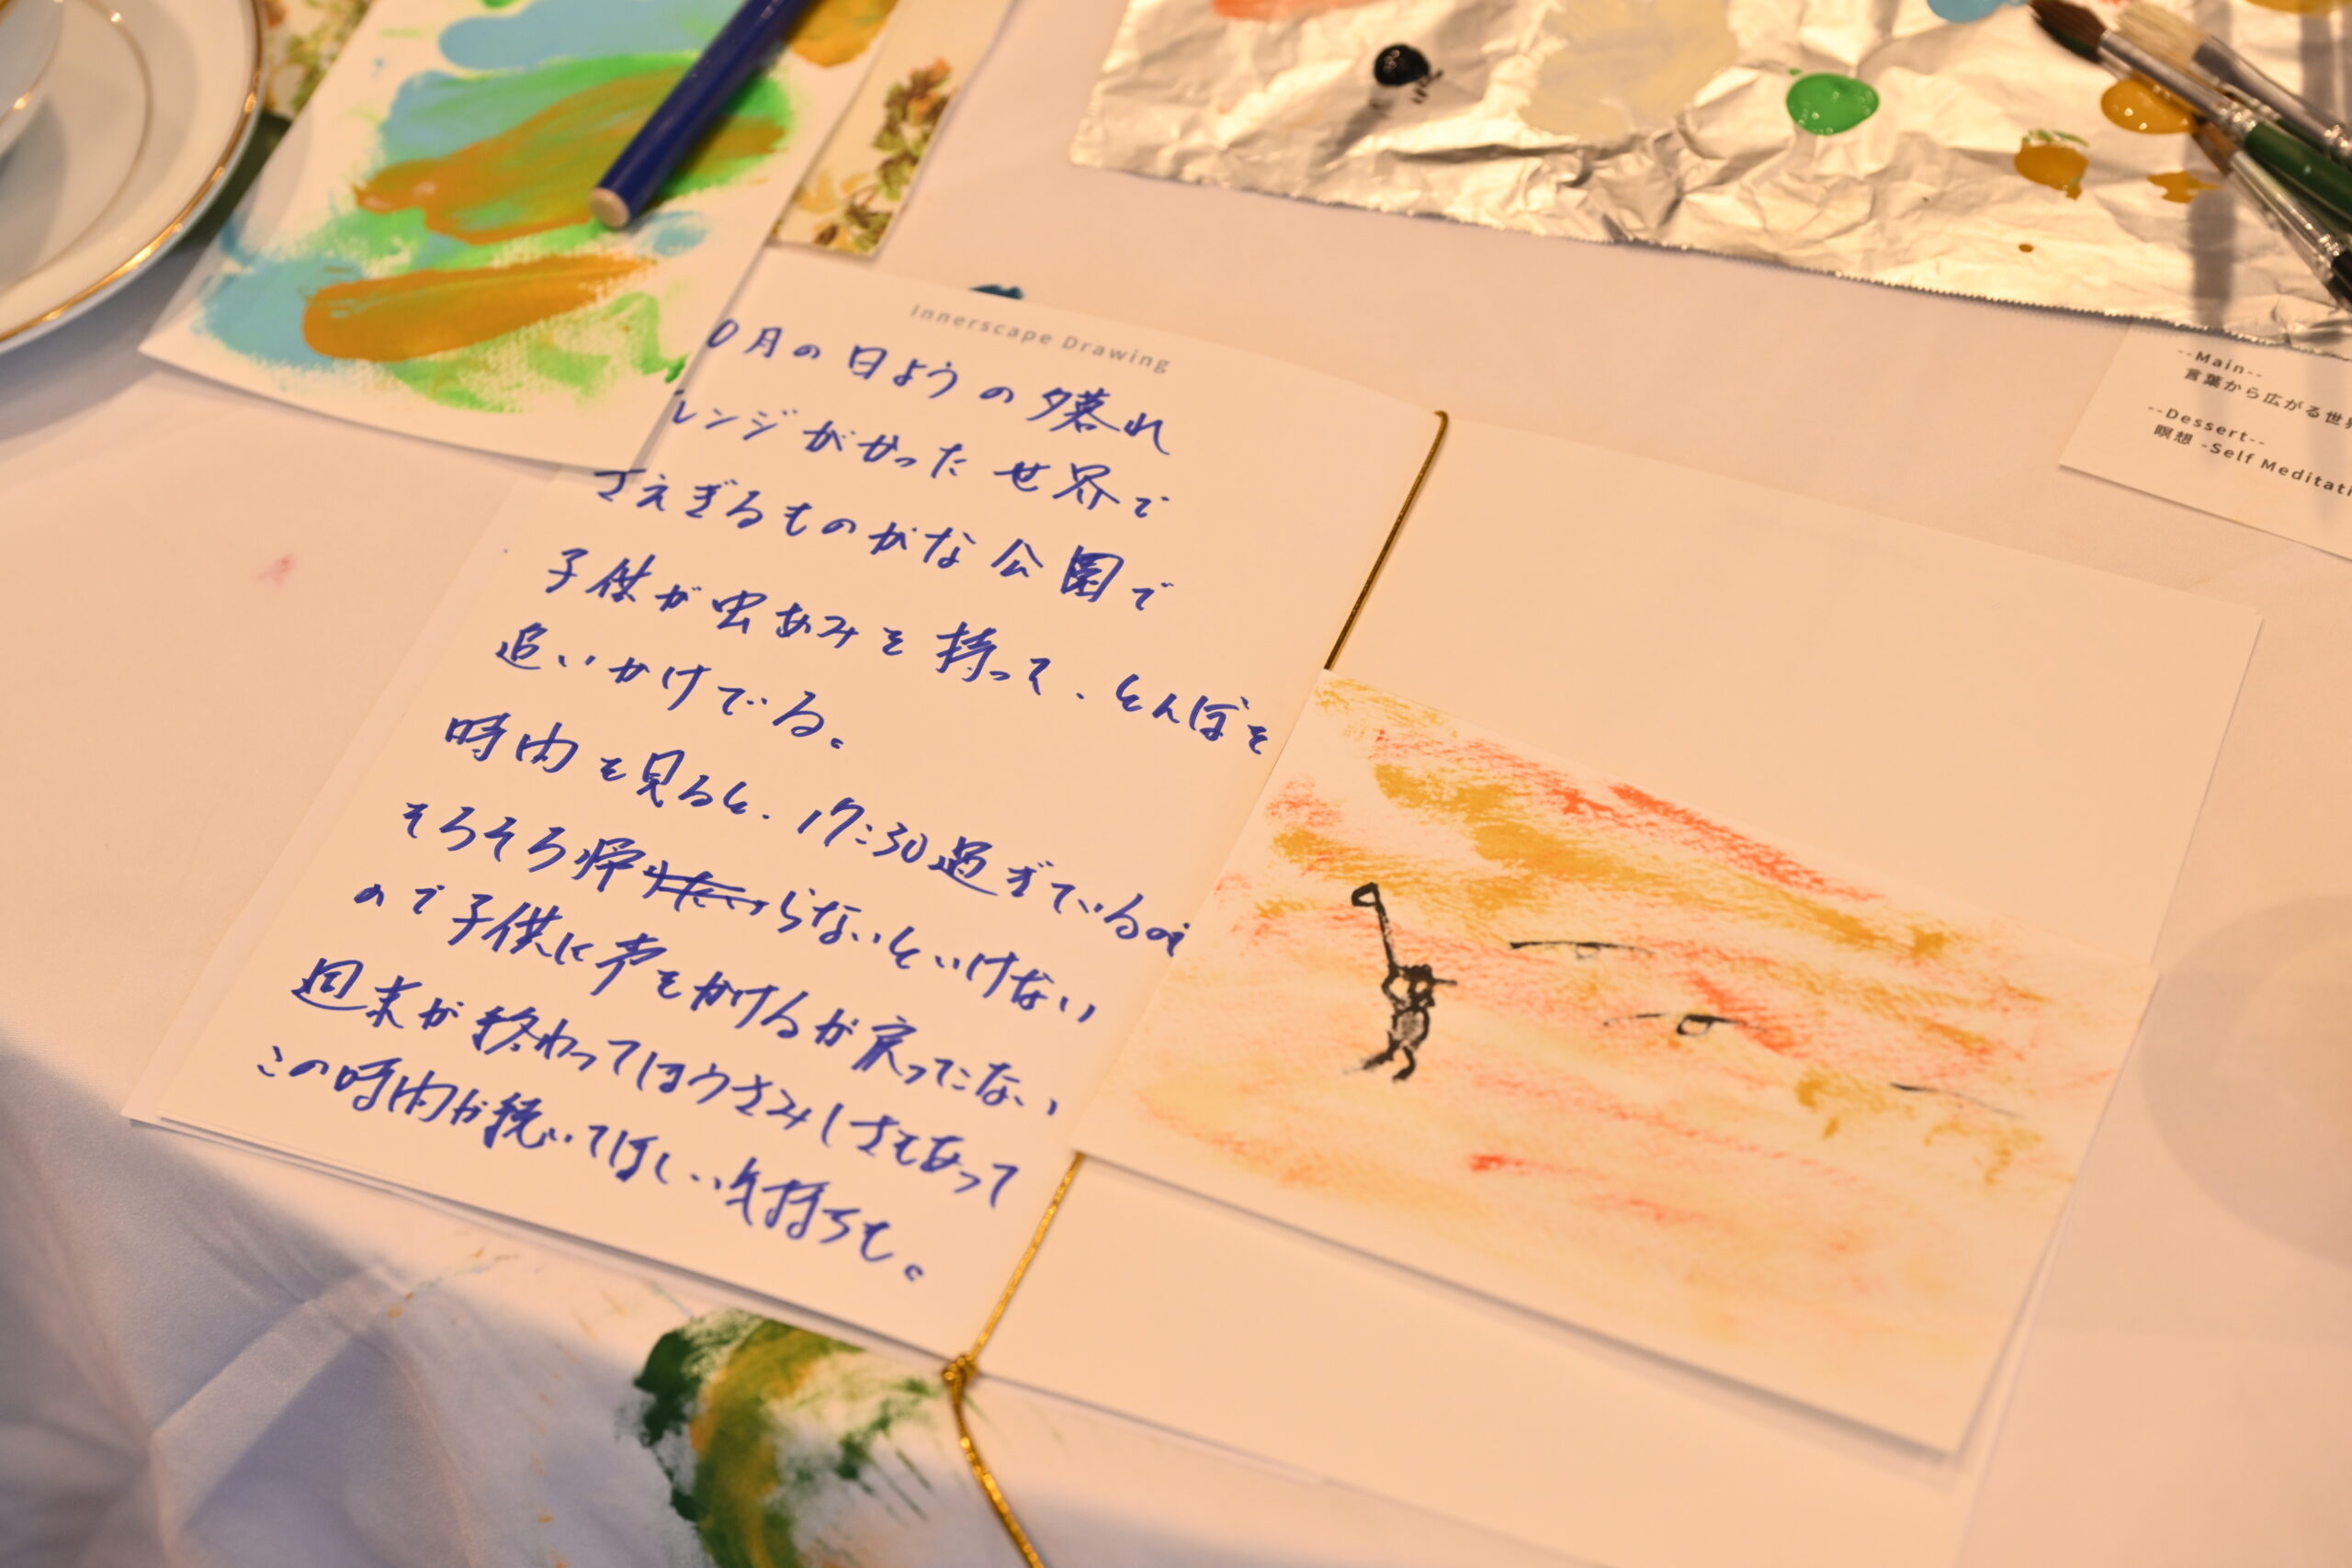 Innerscape Drawing
0月の日ようの夕暮れ
レンジがかった世界で
さえぎるものがな公園で
子供が虫あみを持って、とんぼを
追いかけでる。
時内を見ると、17:30過ぎている
そろそろ帰らないといけない
ので子供に声をかけるが戻ってこない
週末が終わってほうさみしさもあって
この時内が続いてほしい気持ちも。
--Main--
言葉から広がる世界
--Dessert--
瞑想 -Self Meditati